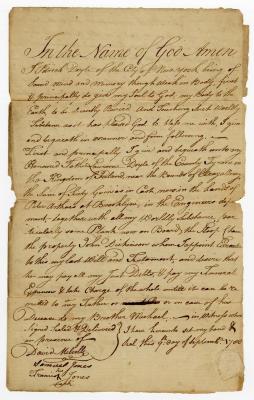 In the Name of God Amen
I Patrick Doyle of the City of New york, being of
Sound mind and memory though weak in Body, first
& principally do give my Soul to God, my Body to the
Earth, to be decently Buried And Touching which Worldly
Substance as it has pleased God to bless me with, I give
and bequeath in manner and form following.
First and principally I give and bequeath unto my
Honoured Father Doyle of the County Tyrone in
the Kingdom of Ireland near the
the Sum of Sixty Guineas in Cash, now in the hands of
John Arthurs at Brooklyn, in the Engineers depart-
ment, Together with all my Worldly Substance, par-
ticularly some Plank now on Board the Sloop
the property John Dickinson whom I appoint
to this my last Will and Testament, and desire that
he may pay all my Just Debts & pay my Funeral
Expences & take Charge of the whole untill it can be re-
mitted to my Father or in case of his
Decease to my Brother Michael. in Witness whereof
Signed Sealed & Delivered I have hereunto set my hand &
in presence of Seal this 9th day of September 1780
David Melville
Samuel Jones
Francis Jones